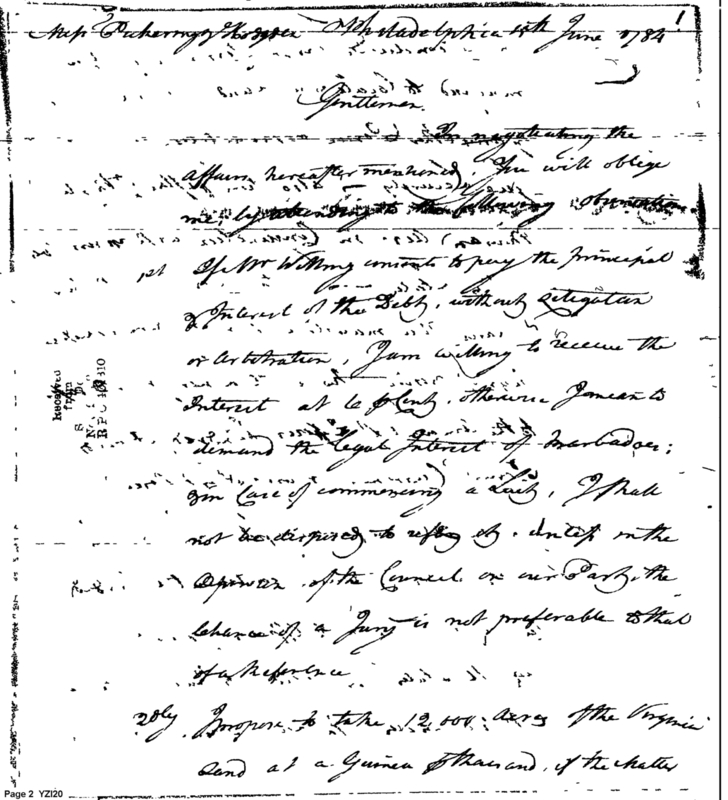 Mess Pickering & Hodgdon Philadelphia 15th June 1784
1
Gentlemen
In negotiating the
affairs hereafter mentioned, You will oblige
me, by attending to the following observations
1st If Mr Willing consents to pay the Principal
& Interest of the Debt, without Litigation
or Arbitration, I am willing to receive the
Interest at 6 pCent, otherwise I mean to
demand the legal Interest of Barbadoes;
& in Case of commencing a Suit, I shall
not be disposed to refer it, unless in the
Opinion of the Council on our Part, the
Chance of a Jury is not preferable to that
of a Reference
2dly I propose to take 12,000 Acres of the Virginia
Land at a Guinea thousand, if the matter
Received
from
Page 2 YZI20